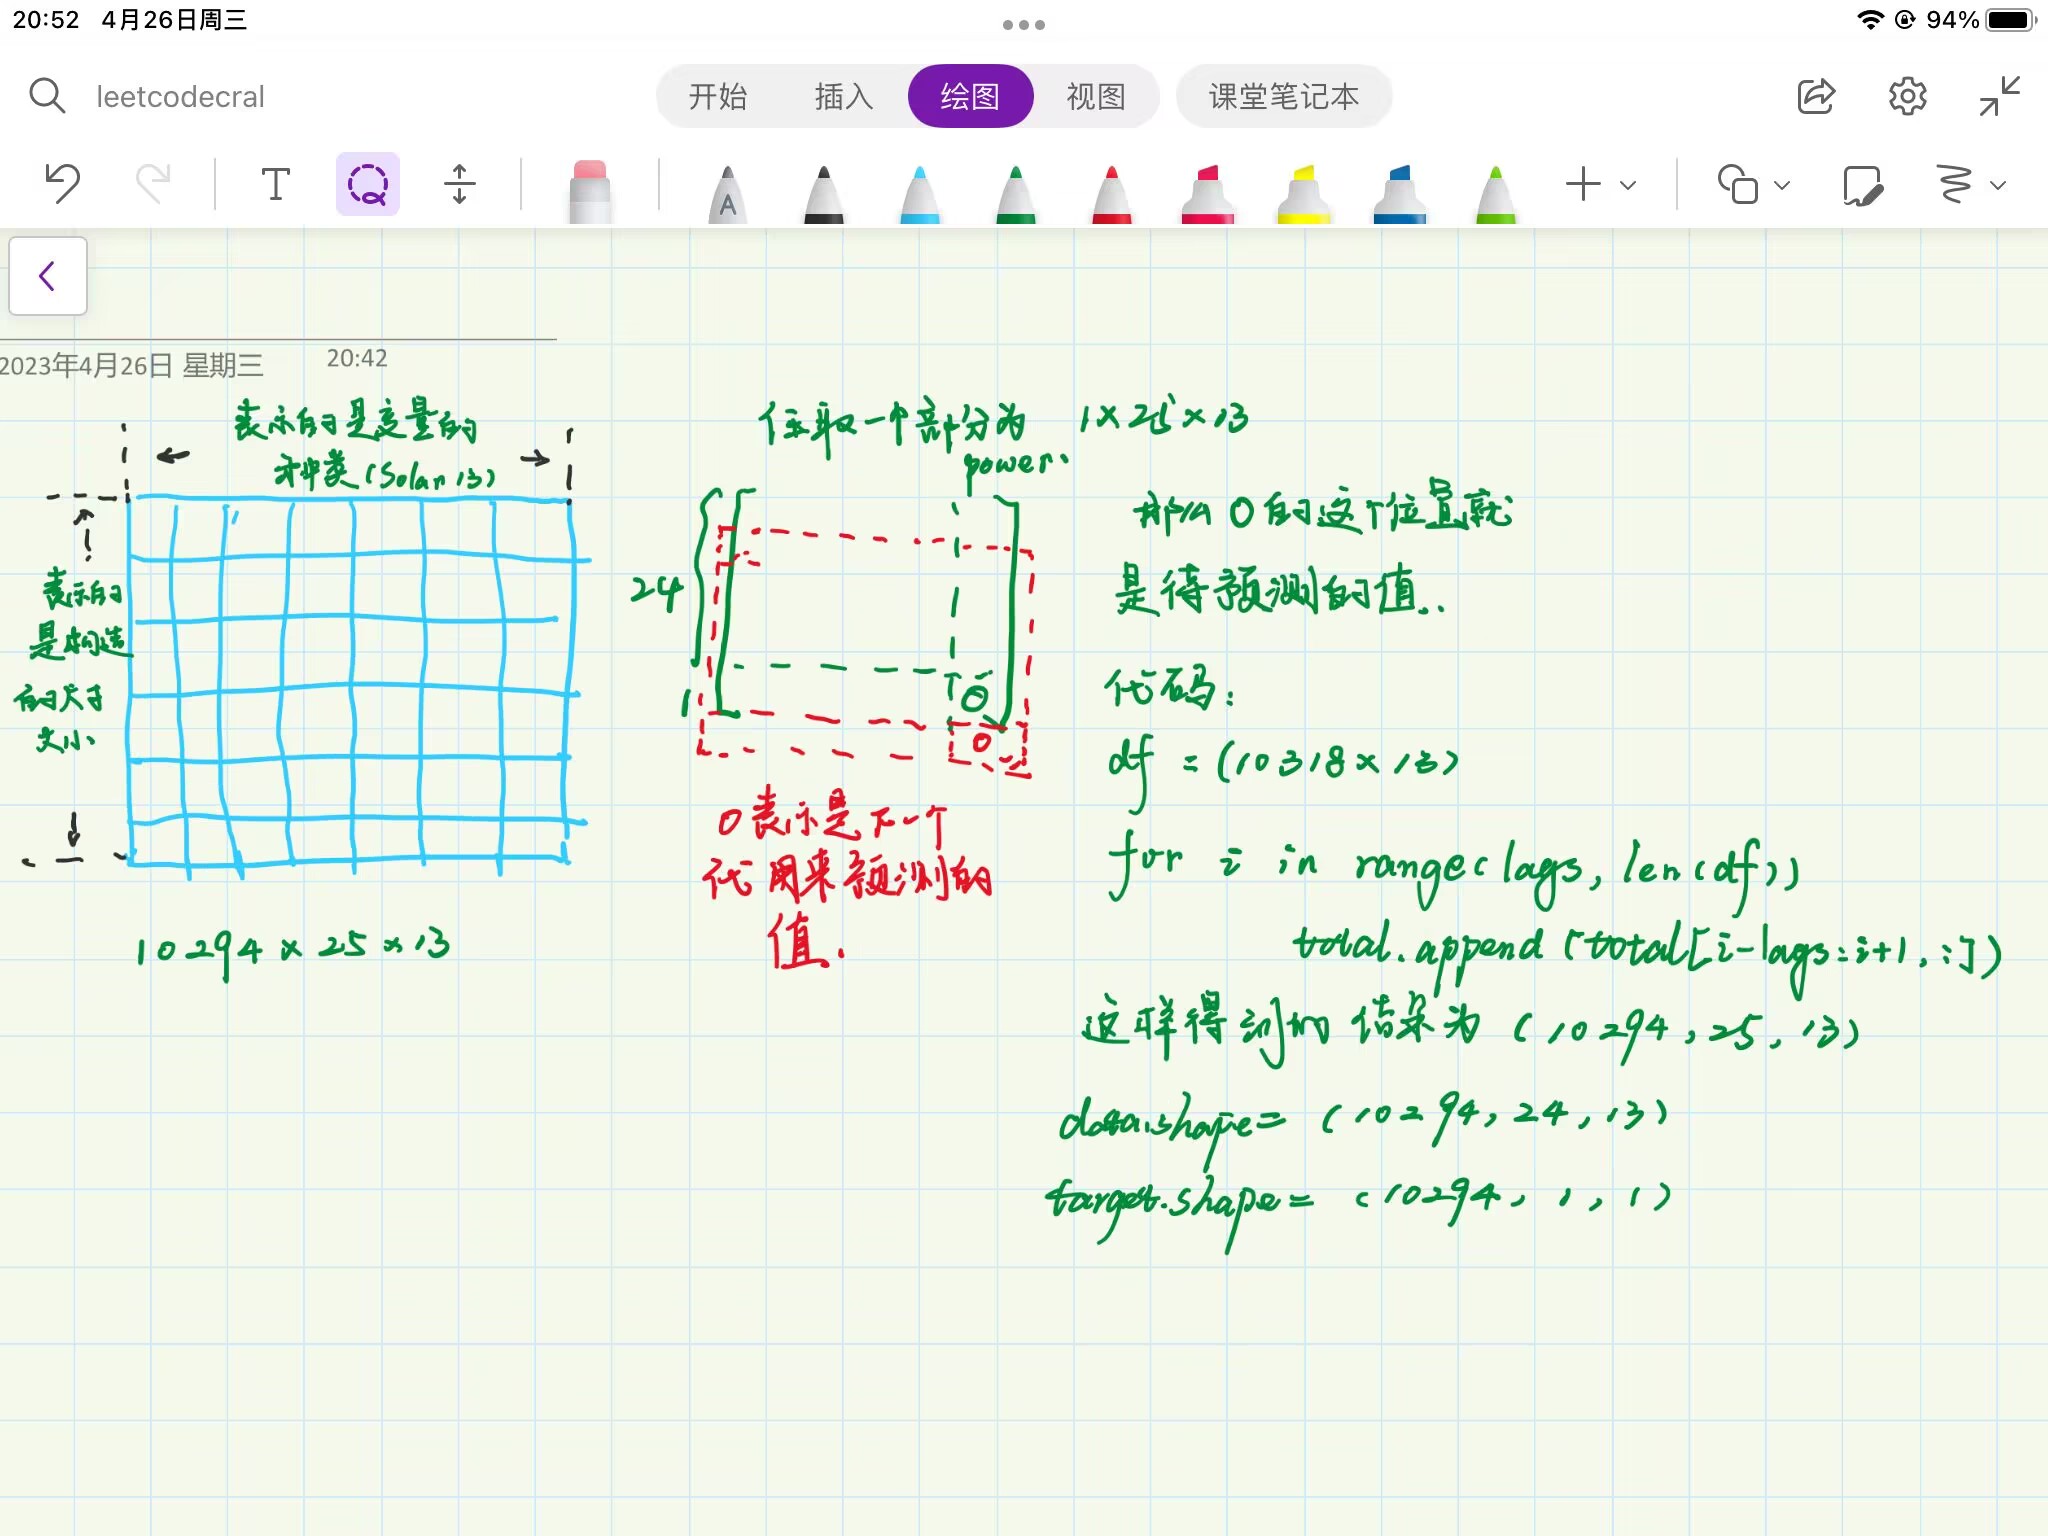 20:52 4月26日周三
94%
leetcodecral
开始 插入 绘图 视图 课堂笔记本
T
A
2023年4月26日 星期三 20:42
表示的是度量的
种类(Solar 13)
表示的
是构造
的尺寸
大小
10294 × 25 × 13
任取一个部分为 1×25×13
power.
24
1
0
0
0表示是下一个
代 用来预测的
值.
那么 0的这个位置就
是待预测的值..
代码:
df = (10318×13)
for i in range(lags, len(df))
total.append(total[i-lags:i+1, :])
这样得到的 结果为 (10294, 25, 13)
data.shape= (10294, 24, 13)
target.shape= (10294, 1, 1)